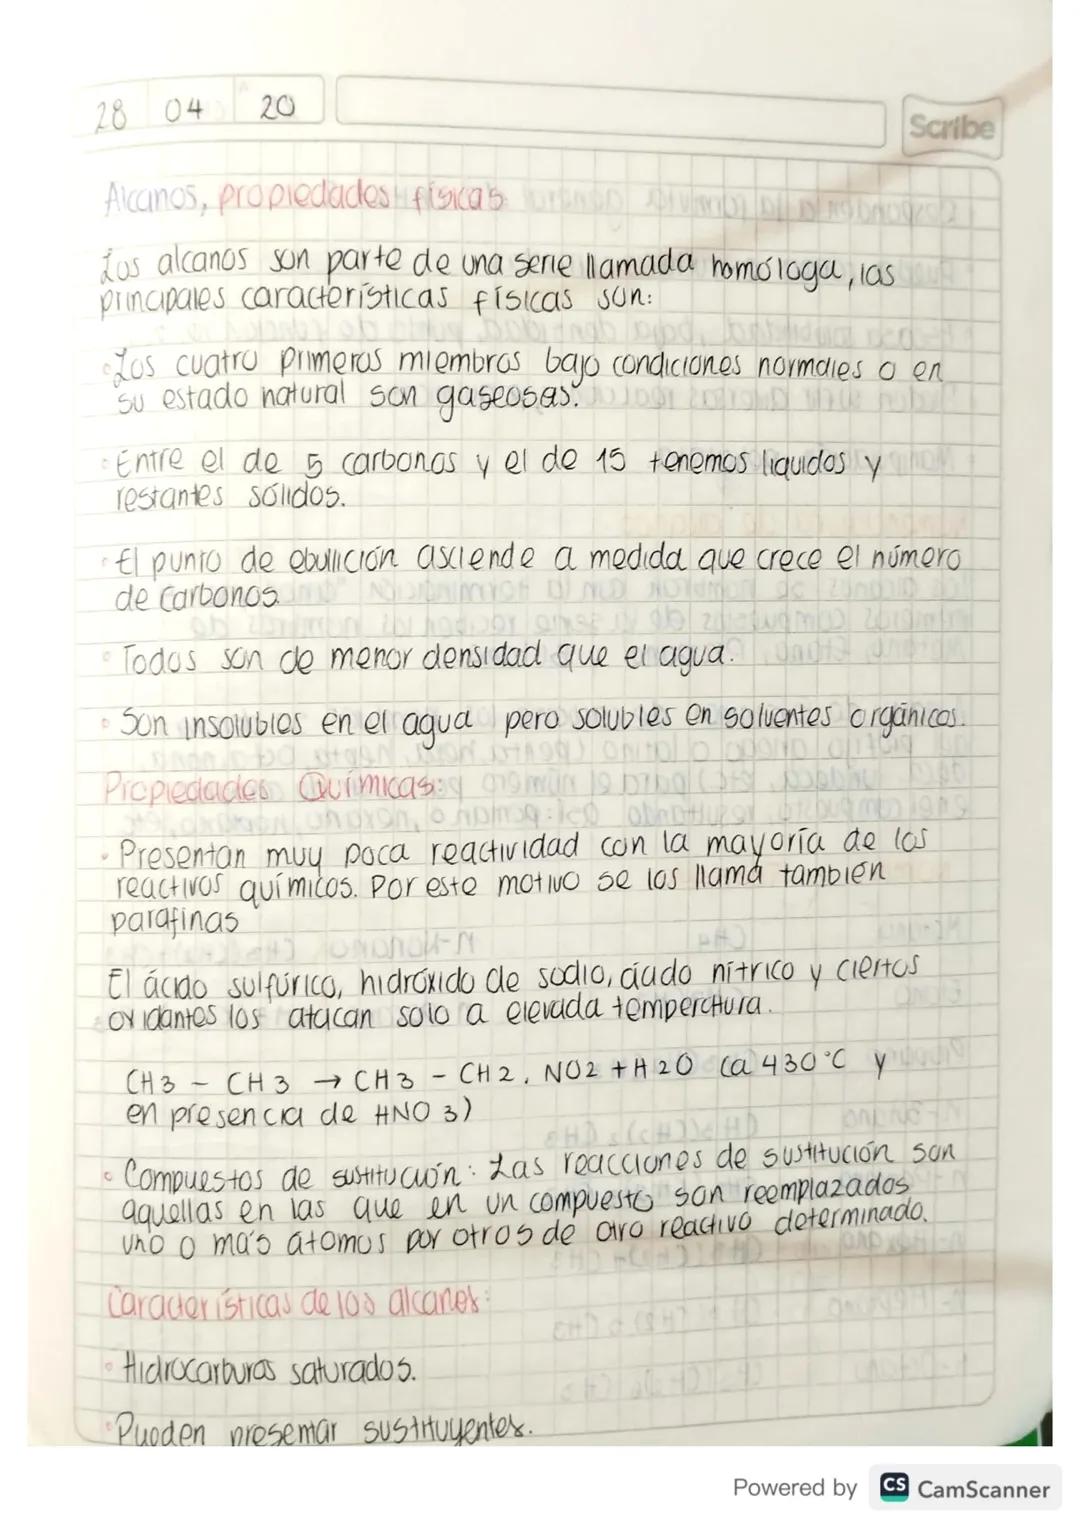 28 04 20
Scribe
Alcanos, propiedades físicas
Los alcanos son parte de una serie llamada homóloga, las
principales características físicas son:
• Los cuatro primeros miembros bajo condiciones normales o en
su estado natural son gaseosas.
• Entre el de 5 carbonos y el de 15 tenemos liquidos y
restantes sólidos.
• El punto de ebullición asciende a medida que crece el número
de carbonos
• Todos son de menor densidad que el agua.
• Son insolubles en el agua pero solubles en solventes orgánicos.
Propiedades Químicas:
• Presentan muy poca reactividad con la mayoría de los
reactivos químicos. Por este motivo se los llama también
parafinas
El ácido sulfúrico, hidróxido de sodio, ácido nítrico y ciertos
oxidantes los atacan solo a elevada temperatura.
CH3 - CH3 → CH3 - CH2. NO2 + H2O (a 430°C y
en presencia de HNO3)
• Compuestos de sustitución: Las reacciones de sustitución son
aquellas en las que en un compuesto son reemplazados
uno o más átomos por otros de otro reactivo determinado.
Características de los alcanos:
• Hidrocarburos saturados.
• Pueden presentar sustituyentes.
Powered by CS CamScanner